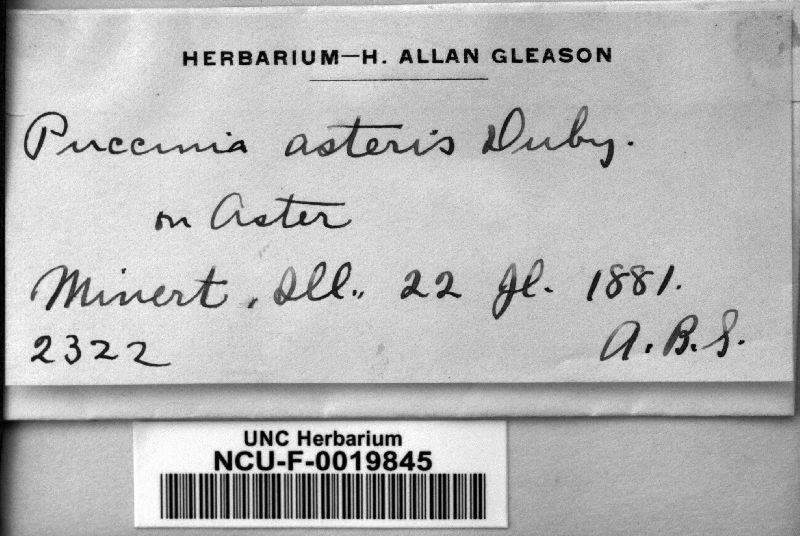 HERBARIUM—H. ALLAN GLEASON
Puccinia asteris Duby.
on Aster
Minert, Ill., 22 Jl. 1881.
2322 A.B.S.
UNC Herbarium
NCU-F-0019845